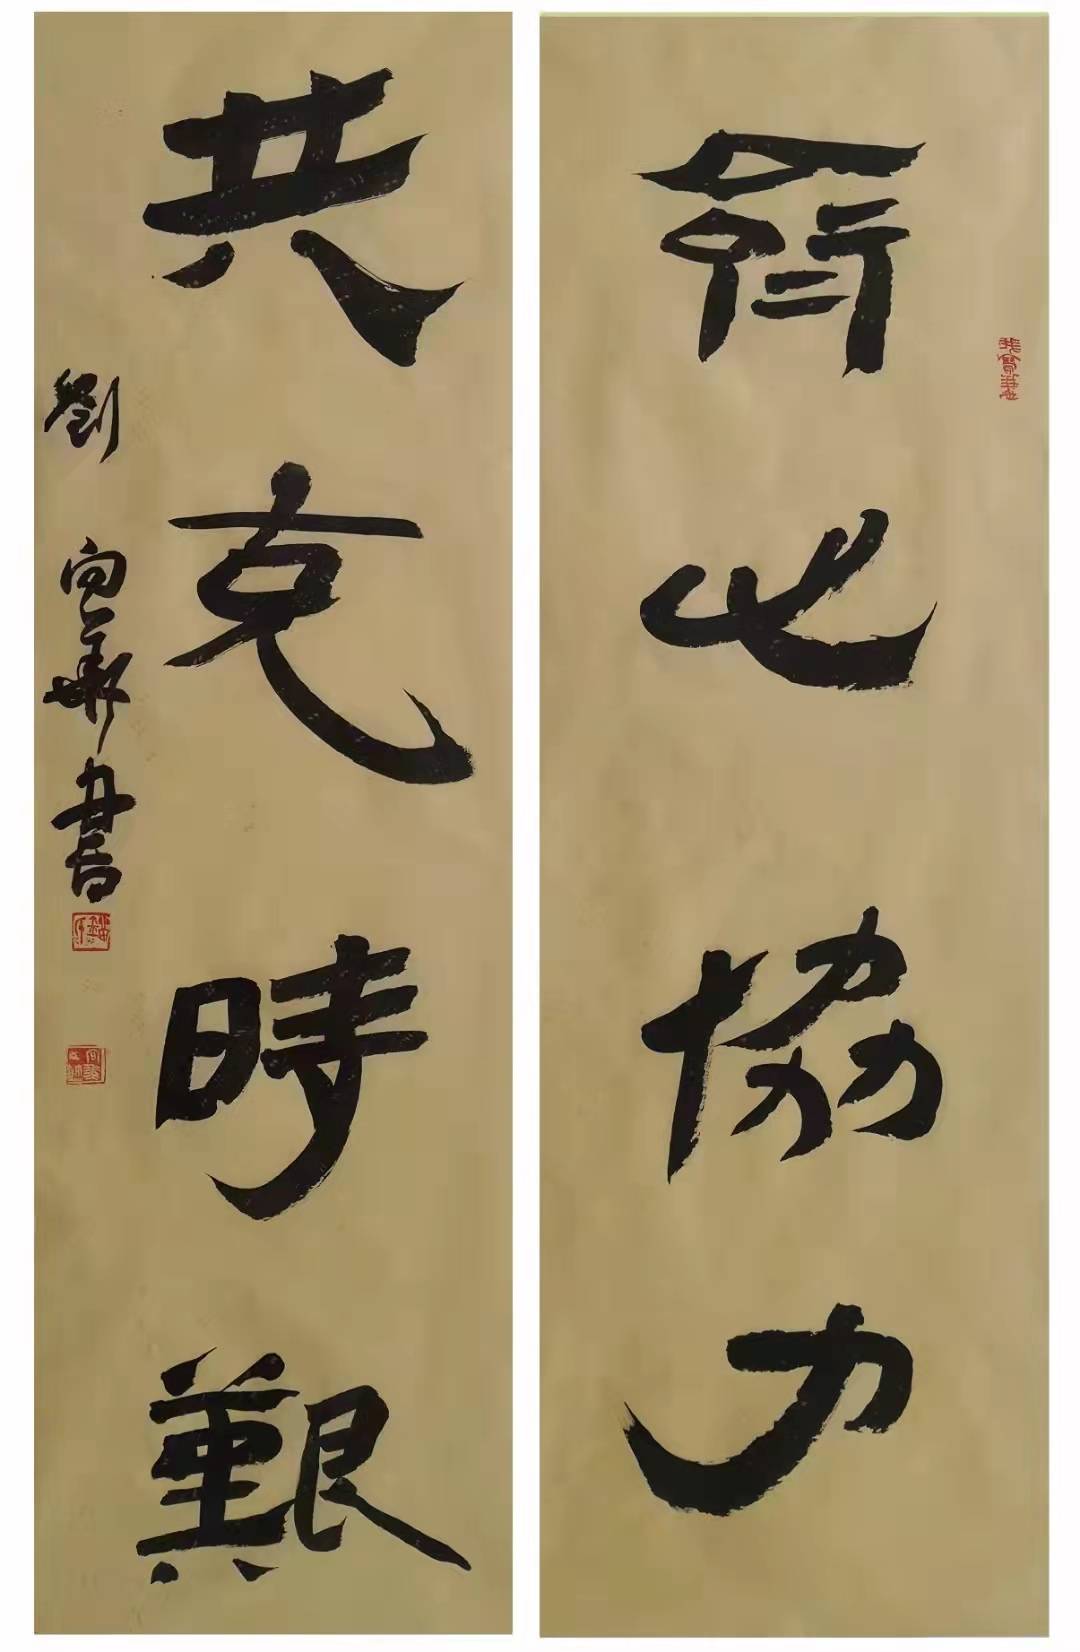 齊心協力
共克時艱
劉向華書